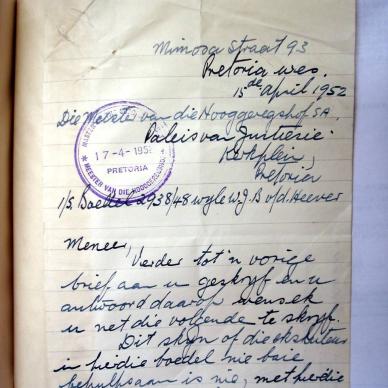 Mimosa Straat 93
Pretoria wes.
15de April 1952
Die Meester van die Hooggeregshof S.A.
Paleis van Justiesie.
Kerkplein,
Pretoria
17-4-1952
PRETORIA
MEESTER VAN DIE HOOGGEREGSHOF
i/s Boedel 2938/48 wyle W.J.B v/d Heever
Meneer,
Verder tot 'n vorige
brief aan u geskryf en u
antwoord daarop wens ek
u net die volgende te skryf.
Dit skyn of die eksekuteurs
in hierdie boedel nie baie
behulpsaam is nie, met hierdie